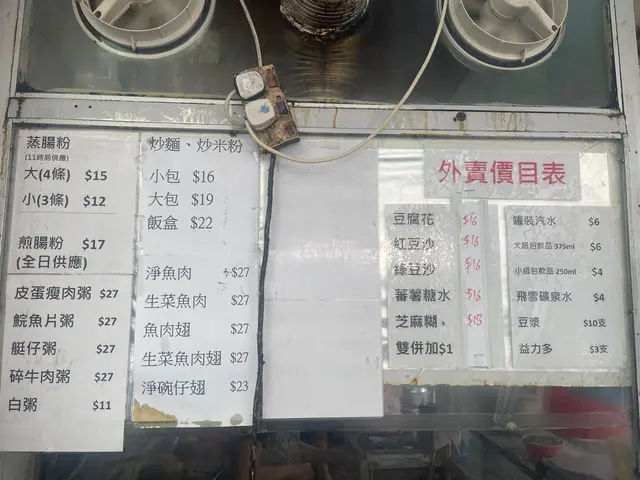 蒸腸粉
(11時前供應)
大(4條) $15
小(3條) $12
煎腸粉 $17
(全日供應)
皮蛋瘦肉粥 $27
鯇魚片粥 $27
艇仔粥 $27
碎牛肉粥 $27
白粥 $11
炒麵、炒米粉
小包 $16
大包 $19
飯盒 $22
淨魚肉 $27
生菜魚肉 $27
魚肉翅 $27
生菜魚肉翅 $27
淨碗仔翅 $23
外賣價目表
豆腐花 $16
紅豆沙 $16
綠豆沙 $16
蕃薯糖水 $16
芝麻糊 $18
雙併加$1
罐裝汽水 $6
大紙包飲品 375ml $6
小紙包飲品 250ml $4
飛雪礦泉水 $4
豆漿 $10支
益力多 $3支